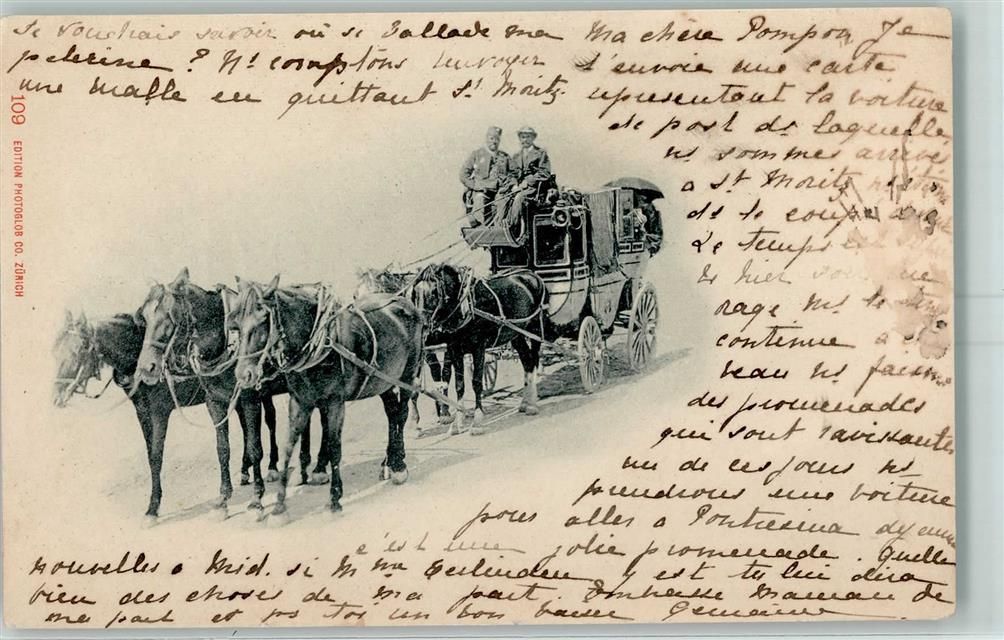 Ma chère Pompon Je
t'envoie une carte
représentant la voiture
de post ds laquelle
ns sommes arrivés
à St Moritz
ds le coupé
Le temps
hier
rage ns le
continue a
veau ns faisons
des promenades
qui sont ravissantes
un de ces jours ns
prendrons une voiture
pour aller a Pontresina
c'est une jolie promenade. Quelle
nouvelles a Mid. si Mme y est tu lui diras
bien des choses de ma part. Embrasse Maman de
ma part et pr toi un bon baiser Germaine
Je voudrais savoir où se ballade ma
pelerine? Ns comptons envoyer
une malle en quittant St. Moritz.
109 EDITION PHOTOGLOB CO. ZÜRICH